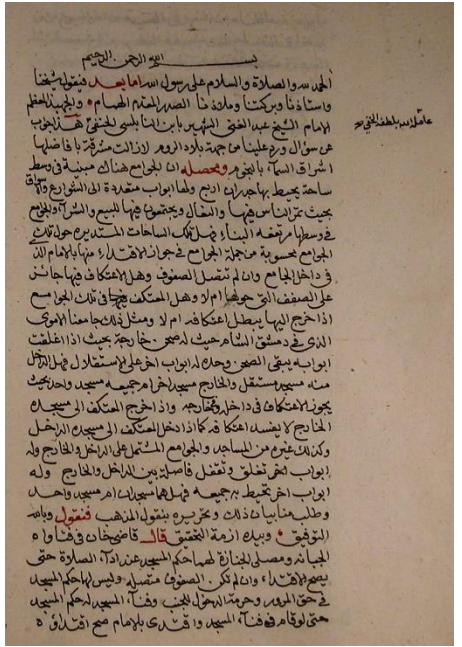 بسم الله الرحمن الرحيم
الحمد لله والصلاة والسلام على رسول الله اما بعد فيقول شيخنا
واستاذنا وبركتنا وملاذنا الصدر المقدم الهمام والجهبذ المعظم
الامام الشيخ عبد الغني الشهير بابن النابلسي الحنفي هذا جواب
عن سؤال ورد علينا من جهة بلاد الروم لازالت مشرقة بافاضلها
اشراق السماء بالنجوم ومحصله ان الجوامع هناك مبنية في وسط
ساحة يحيط بها جدران اربع ولها ابواب متعددة الى الشوارع والاسواق
بحيث تمر الناس فيها والبغال ويجتمعون فيها للبيع والشراء والجوامع
في وسطها مرتفعة البناء فهل تلك الساحات المستديره حول تلك
الجوامع محسوبة من جملة الجوامع في جواز الاقتداء منها بالامام الذي
في داخل الجامع وان لم تتصل الصفوف وهل الاعتكاف فيها جائز
على الصفف التي حولها ام لا وهل المعتكف في تلك الجوامع
اذا خرج اليها يبطل اعتكافه ام لا ومثل ذلك جامعنا الاموي
الذي في دمشق الشام حيث له صحن خارجه بحيث اذا غلقت
ابوابه يبقى الصحن وحده له ابواب اخر على الاستقلال فهل الداخل
منه مسجد مستقل والخارج مسجد اخر ام جميعه مسجد واحد بحيث
يجوز الاعتكاف في داخله وخارجه واذا خرج المعتكف الى مسجده
الخارج لا يفسد اعتكافه كما اذا دخل المعتكف الى مسجده الداخل
وكذلك غيره من المساجد والجوامع المشتمل على الداخل والخارج وله
ابواب اخر تغلق وتقفل فاصلة بين الداخل والخارج وله
ابواب اخر تحيط بجميعه فهل هما مسجدان ام مسجد واحد
وطلب منا بيان ذلك وتحريره بنقول المذهب فنقول وبالله
التوفيق وبيده ازمة التحقيق قال قاضي خان في فتاواه
الجبانه ومصلى الجنازة لهما حكم المسجد عند اداء الصلاة حتى
يصح الاقتداء وان لم تكن الصفوف متصلة وليس لها حكم المسجد
في حق المرور وحرمة الدخول للجنب وفناء المسجد له حكم المسجد
حتى لو قام في فناء المسجد واقتدى بالامام صح اقتداؤه
عامله الله بلطفه الخفي